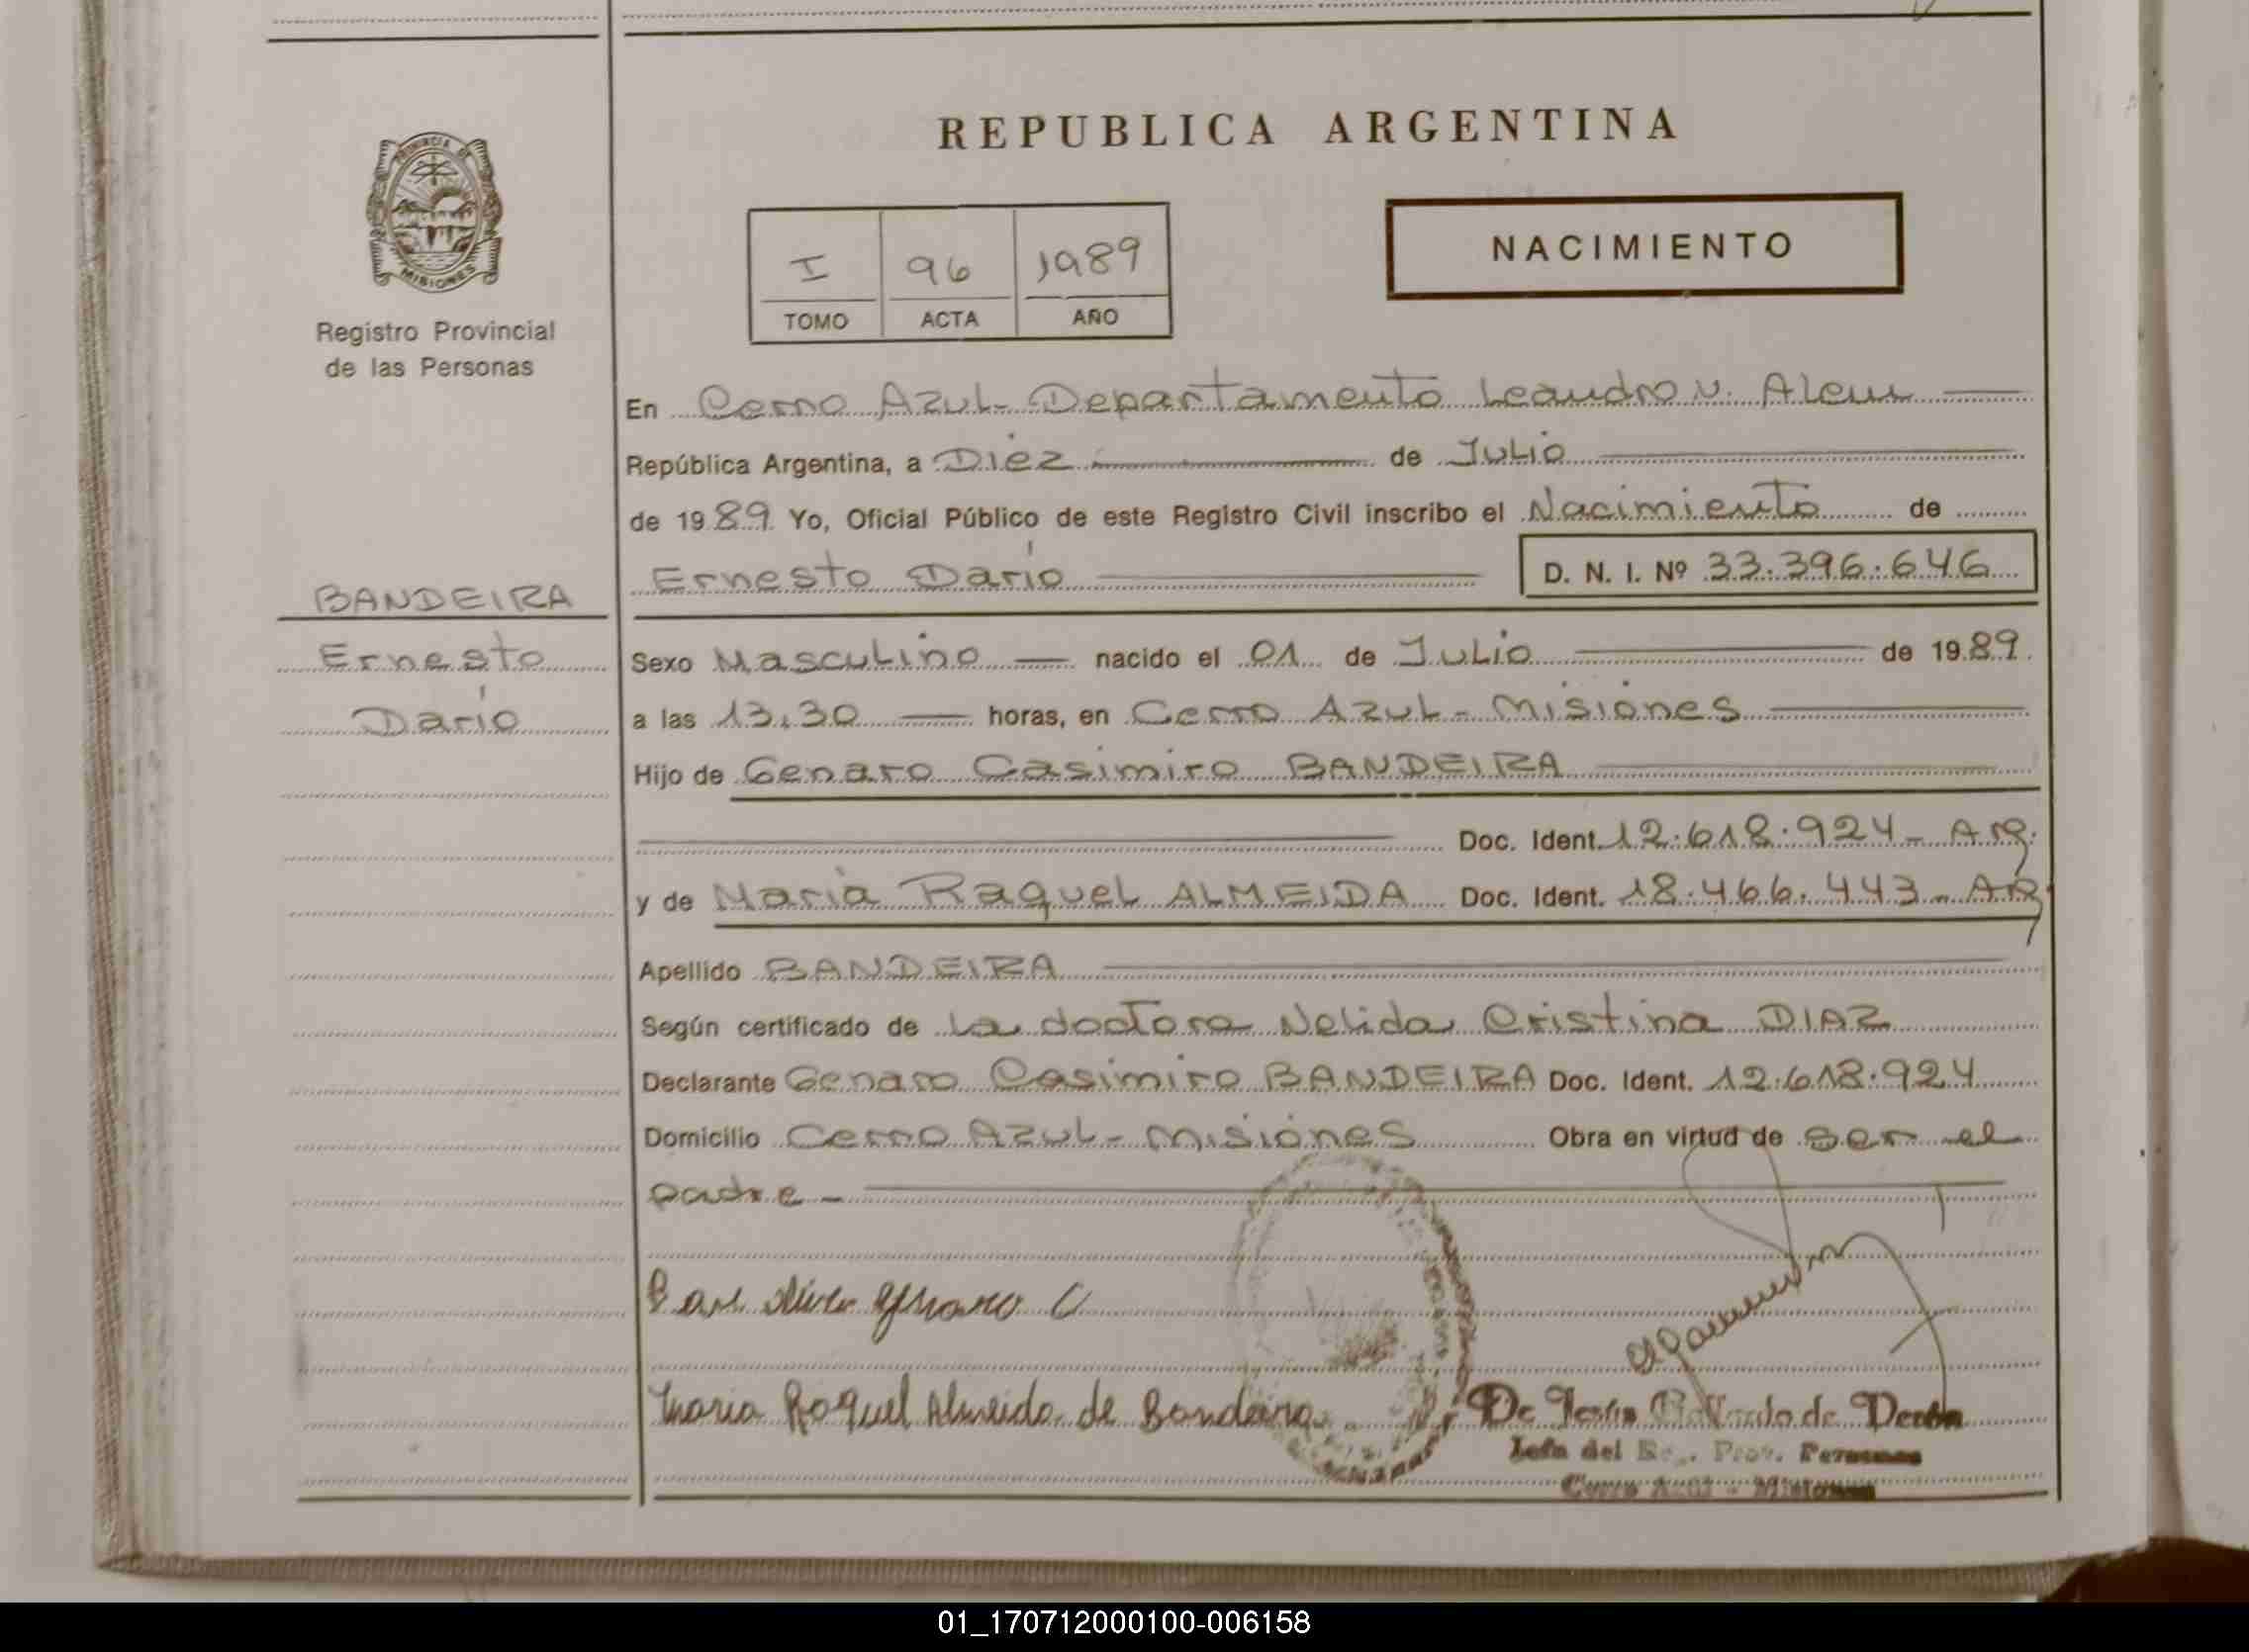 REPUBLICA ARGENTINA
PROVINCIA DE
MISIONES
Registro Provincial
de las Personas
I 96 1989
TOMO ACTA AÑO
NACIMIENTO
En Cerro Azul - Departamento Leandro N. Alem
República Argentina, a Diez de Julio
de 1989 Yo, Oficial Público de este Registro Civil inscribo el Nacimiento de
Ernesto Darío D. N. I. Nº 33.396.646
BANDEIRA
Ernesto
Darío
Sexo Masculino nacido el 01 de Julio de 1989.
a las 13,30 horas, en Cerro Azul - Misiones
Hijo de Genaro Casimiro BANDEIRA
Doc. Ident. 12.618.924 - Arg.
y de Maria Raquel ALMEIDA Doc. Ident. 18.466.443 - Arg
Apellido BANDEIRA
Según certificado de la doctora Nelida Cristina DIAZ
Declarante Genaro Casimiro BANDEIRA Doc. Ident. 12.618.924
Domicilio Cerro Azul - Misiones Obra en virtud de ser el
padre -
Maria Raquel Almeida de Bandeira
de
Jefa del Prov. Personas
Cerro Azul - Misiones
01_170712000100-006158